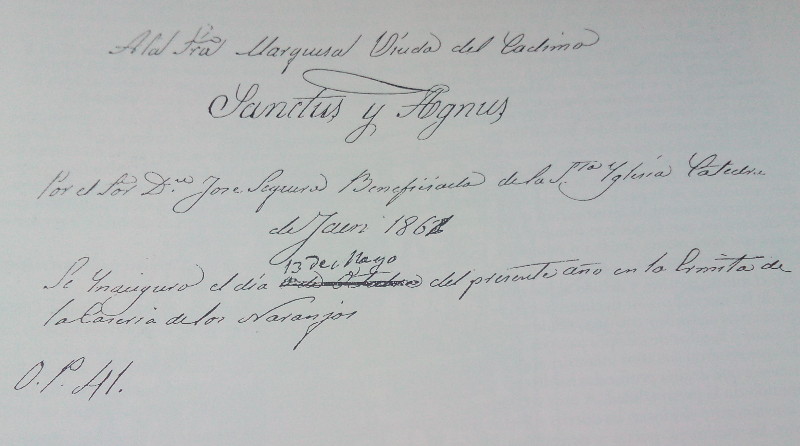 A la Sra Marquesa Viuda del Cadimo
Sanctus y Agnus
Por el Sor Dn Jose Segura Beneficiado de la Sta Yglesia Catedra
de Jaen 186
13 de Mayo
Se Ynauguro el día del presente año en la Ermita de
la Caseria de los Naranjos
O.P. 41.